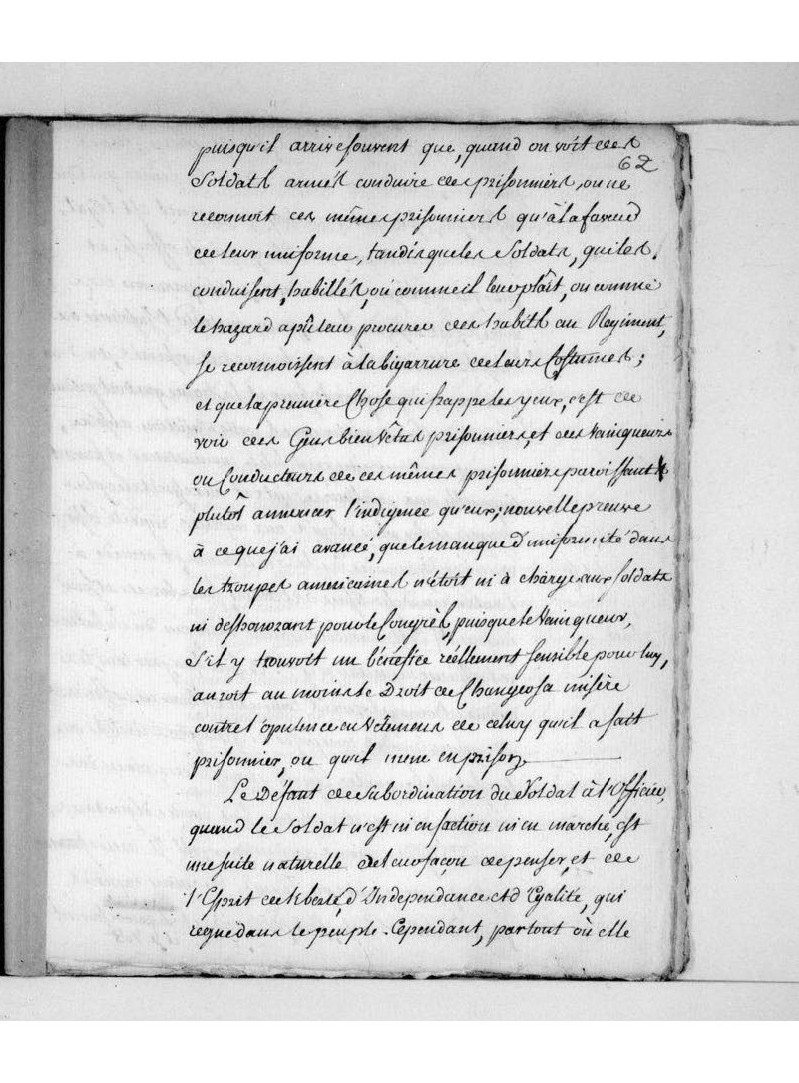 puisqu'il arrive souvent que, quand on voit des
62
Soldats armés conduire des prisonniers, on ne
reconnoit ces mêmes prisonniers qu'à la faveur
de leur uniforme, tandis que les Soldats, qui les
conduisent, habillés, ou comme il leur plâit, ou comme
le hazard a pû leur procurer des habits au Régiment,
se reconnoissent à la bigarrure de leurs Costumes;
et que la première Chose qui frappe les yeux, c'est de
voir des Gens bien Vêtus prisonniers, et des Vainqueurs
ou Conducteurs de ces mêmes prisonniers paroissants
plutôt annoncer l'indigence qu'eux; nouvelle preuve
à ce que j'ai avancé, que le manque d'uniformité dans
les troupes americaines n'étoit ni à charge aux Soldats
ni deshonorant pour le Congrès, puisque le Vainqueur,
S'il y trouvoit un bénéfice réellement sensible pour luy,
auroit au moins le Droit de Changer sa misère
contre l'opulence en Vêtemens de celuy qu'il a fait
prisonnier, ou qu'il mene en prison.
Le Défaut de Subordination du Soldat à l'Officier,
quand le Soldat n'est ni en faction ni en marche, est
une suite naturelle de leur façon de penser, et de
l'Esprit de liberté, d'Independance et d'Egalité, qui
regne dans le peuple. Cependant, partout où elle